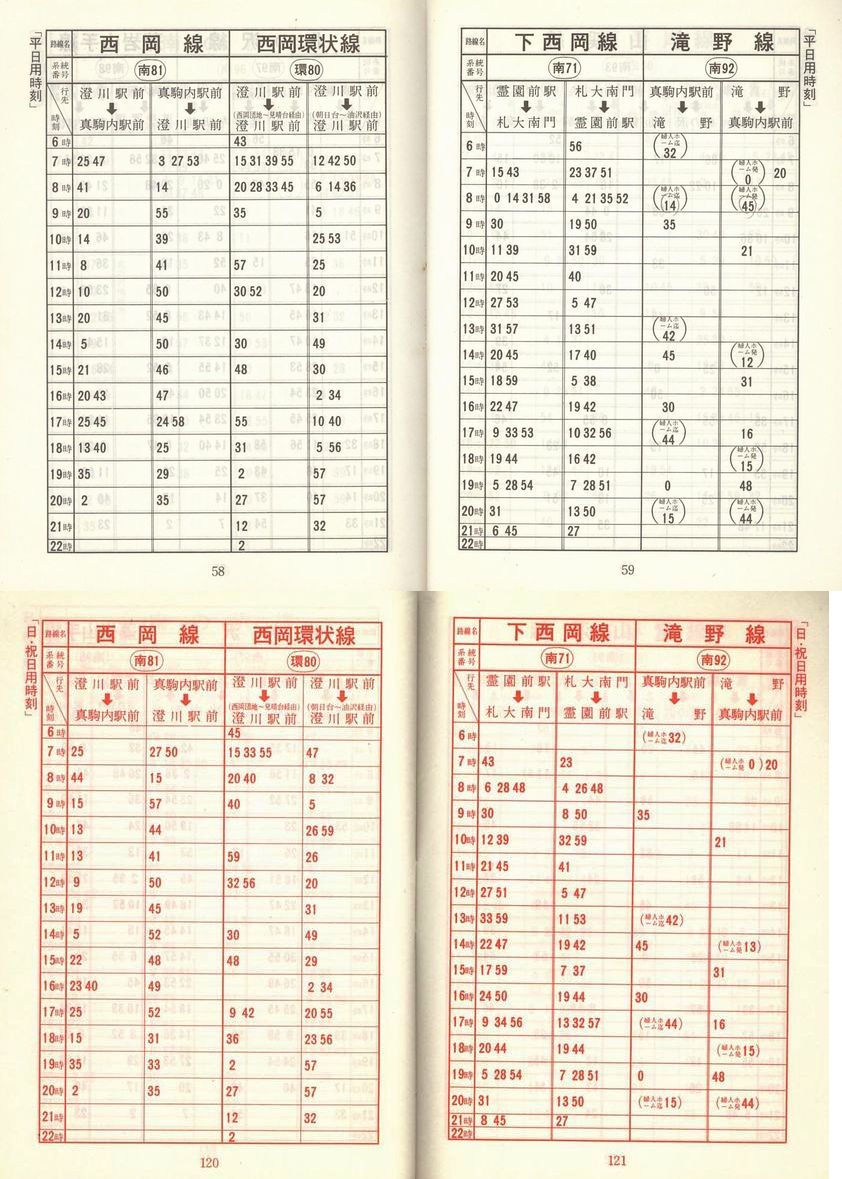 「平日用時刻」
路線名 西岡線 西岡環状線
系統番号 南81 環80
行先 時刻 澄川駅前➡真駒内駅前 真駒内駅前➡澄川駅前 澄川駅前➡(西岡団地〜見晴台経由)澄川駅前 澄川駅前➡(朝日台〜油沢経由)澄川駅前
6時 43
7時 25 47 3 27 53 15 31 39 55 12 42 50
8時 41 14 20 28 33 45 6 14 36
9時 20 55 35 5
10時 14 39 25 53
11時 8 41 57 25
12時 10 50 30 52 20
13時 20 45 31
14時 5 50 30 49
15時 21 46 48 30
16時 20 43 47 2 34
17時 25 45 24 58 55 10 40
18時 13 40 25 31 5 56
19時 35 29 2 57
20時 2 35 27 57
21時 12 32
22時 2
58
「平日用時刻」
路線名 下西岡線 滝野線
系統番号 南71 南92
行先 時刻 霊園前駅➡札大南門 札大南門➡霊園前駅 真駒内駅前➡滝野 滝野➡真駒内駅前
6時 56 (婦人ホーム迄32)
7時 15 43 23 37 51 (婦人ホーム発0) 20
8時 0 14 31 58 4 21 35 52 (婦人ホーム迄14) (婦人ホーム発45)
9時 30 19 50 35
10時 11 39 31 59 21
11時 20 45 40
12時 27 53 5 47
13時 31 57 13 51 (婦人ホーム迄42)
14時 20 45 17 40 45 (婦人ホーム発12)
15時 18 59 5 38 31
16時 22 47 19 42 30
17時 9 33 53 10 32 56 (婦人ホーム迄44) 16
18時 19 44 16 42 (婦人ホーム発15)
19時 5 28 54 7 28 51 0 48
20時 31 13 50 (婦人ホーム迄15) (婦人ホーム発44)
21時 6 45 27
22時
59
「日・祝日用時刻」
路線名 西岡線 西岡環状線
系統番号 南81 環80
行先 時刻 澄川駅前➡真駒内駅前 真駒内駅前➡澄川駅前 澄川駅前➡(西岡団地〜見晴台経由)澄川駅前 澄川駅前➡(朝日台〜油沢経由)澄川駅前
6時 45
7時 25 27 50 15 33 55 47
8時 44 15 20 40 8 32
9時 15 57 40 5
10時 13 44 26 59
11時 13 41 59 26
12時 9 50 32 56 20
13時 19 45 31
14時 5 52 30 49
15時 22 48 48 29
16時 23 40 49 2 34
17時 25 52 9 42 20 55
18時 15 31 36 23 56
19時 35 33 2 57
20時 2 35 27 57
21時 12 32
22時 2
120
「日・祝日用時刻」
路線名 下西岡線 滝野線
系統番号 南71 南92
行先 時刻 霊園前駅➡札大南門 札大南門➡霊園前駅 真駒内駅前➡滝野 滝野➡真駒内駅前
6時 (婦人ホーム迄32)
7時 43 23 (婦人ホーム発0) 20
8時 6 28 48 4 26 48
9時 30 8 50 35
10時 12 39 32 59 21
11時 21 45 41
12時 27 51 5 47
13時 33 59 11 53 (婦人ホーム迄42)
14時 22 47 19 42 45 (婦人ホーム発13)
15時 17 59 7 37 31
16時 24 50 19 44 30
17時 9 34 56 13 32 57 (婦人ホーム迄44) 16
18時 20 44 19 44 (婦人ホーム発15)
19時 5 28 54 7 28 51 0 48
20時 31 13 50 (婦人ホーム迄15) (婦人ホーム発44)
21時 8 45 27
22時
121